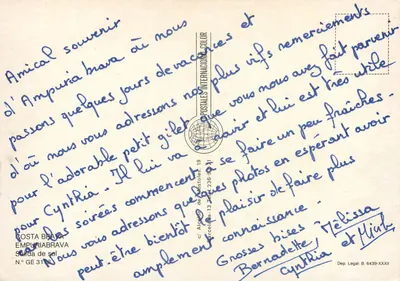 Amical souvenir
d'Ampuria brava où nous
passons quelques jours de vacances et
d'où nous vous adressons nos plus vifs remerciements
pour l'adorable petit gilet que vous nous avez fait parvenir
pour Cynthia. Il lui va à ravir et lui est très utile
car les soirées commencent à se faire un peu fraîches.
Nous vous adressons quelques photos en espérant avoir
peut-être bientôt le plaisir de faire plus
amplement connaissance.
Grosses bises
Bernadette, Mélissa
Cynthia et Minh
POSTALES INTERNACIONAL COLOR
COSTA BRAVA
EMPURIABRAVA
Salida de sol
N.º GE 31
Dep. Legal: B. 6439-XXXII